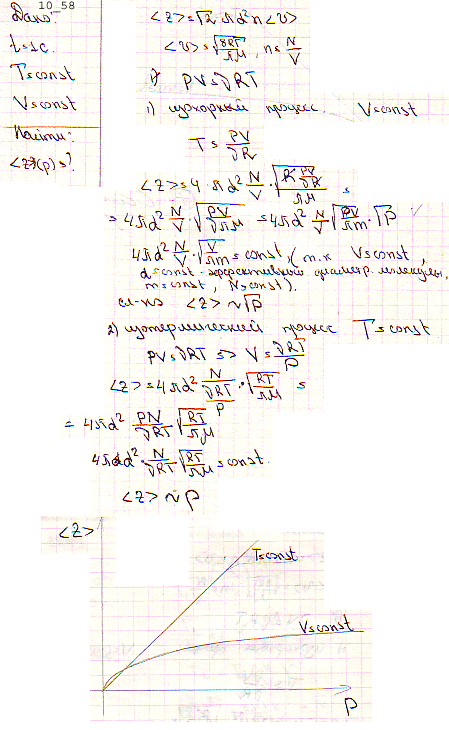 10_58
Дано:
t=1c.
T=const
V=const
Найти:
<z>(p)=?
<z>=√2 πd²n<υ>
<υ>=√(8RT/πμ), n=N/V
PV=νRT
1) изохорный процесс. V=const
T=PV/νR
<z>=4πd² N/V · √(R PV/νR / πμ) =
=4πd² N/V · √(PV/νπμ) =4πd² N/V √(PV/πm) · √P
4πd² N/V · √(V/πm)=const, (т.к V=const,
d=const-эффективный диаметр. молекулы,
m=const, N=const).
сл-но <z>~√P
2) изотермический процесс T=const
PV=νRT => V=νRT/P
<z>=4πd² N/(νRT/P) · √(RT/πμ) =
= 4πd² PN/νRT √(RT/πμ)
4πd² · N/νRT √(RT/πμ)=const.
<z>~P
<z>
T=const
V=const
P